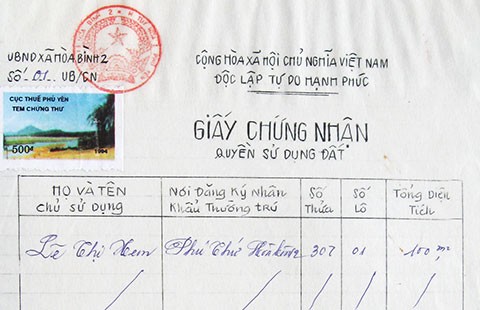 UBND XÃ HÒA BÌNH 2
SỐ .01. UB/CN
CỘNG HÒA XÃ HỘI CHỦ NGHĨA VIỆT NAM
ĐỘC LẬP TỰ DO HẠNH PHÚC
CỤC THUẾ PHÚ YÊN
TEM CHỨNG THƯ
500đ 1994
GIẤY CHỨNG NHẬN
QUYỀN SỬ DỤNG ĐẤT
HỌ VÀ TÊN
CHỦ SỬ DỤNG
Nơi Đăng Ký Nhân
Khẩu Thường Trú
Số
Thửa
Số
Lô
Tổng Diện
Tích
Lê Thị Hem
Phú Thứ
307
01
100 m²